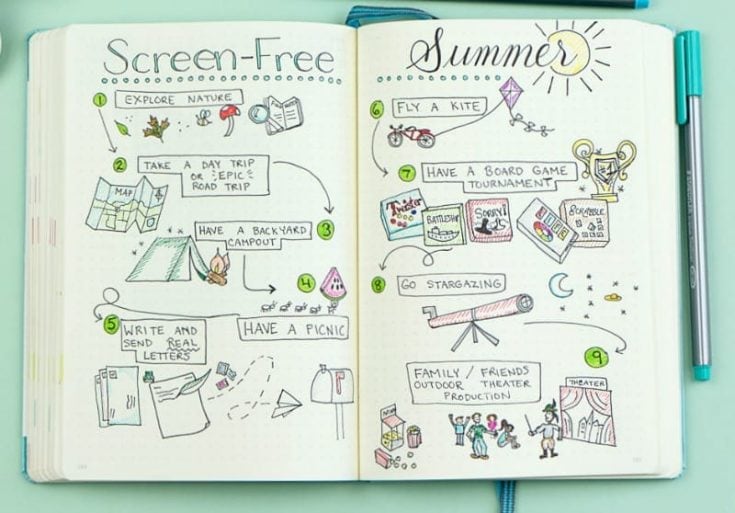 Screen-Free
1
EXPLORE NATURE
2
TAKE A DAY TRIP
OR EPIC
ROAD TRIP
MAP
HAVE A BACKYARD
CAMPOUT
3
4
HAVE A PICNIC
5
WRITE AND
SEND REAL
LETTERS
Summer
6
FLY A KITE
7
HAVE A BOARD GAME
TOURNAMENT
Twister
BATTLESHIP
SORRY!
LIFE
SCRABBLE
8
GO STARGAZING
9
FAMILY / FRIENDS
OUTDOOR THEATER
PRODUCTION
THEATER